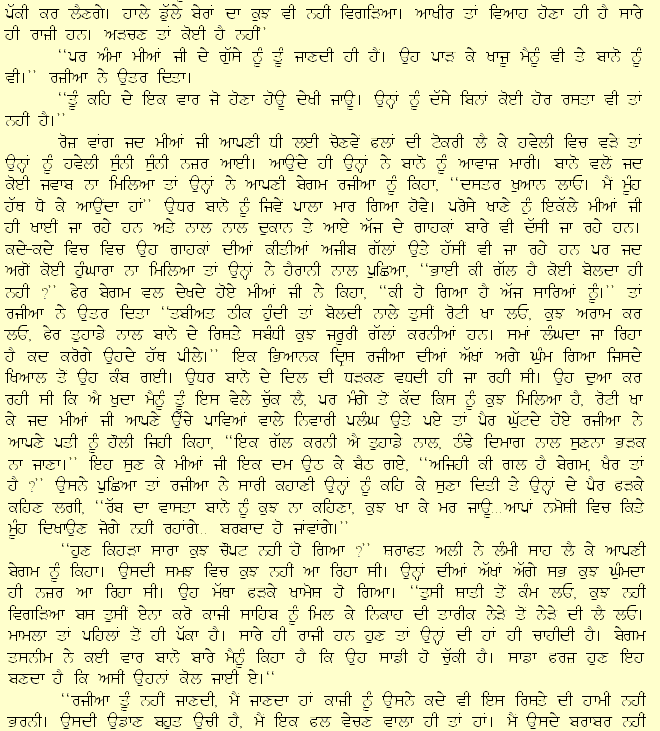 ਪੱਕੀ ਕਰ ਲੈਣਗੇ। ਹਾਲੇ ਡੁੱਲੇ ਬੇਰਾਂ ਦਾ ਕੁਝ ਵੀ ਨਹੀ ਵਿਗੜਿਆ। ਆਖੀਰ ਤਾਂ ਵਿਆਹ ਹੋਣਾ ਹੀ ਹੈ ਸਾਰੇ
ਹੀ ਰਾਜ਼ੀ ਹਨ। ਅੜਚਣ ਤਾਂ ਕੋਈ ਹੈ ਨਹੀਂ''
''ਪਰ ਅੰਮਾ ਮੀਆਂ ਜੀ ਦੇ ਗੁੱਸੇ ਨੂੰ ਤੂੰ ਜਾਣਦੀ ਹੀ ਹੈਂ। ਉਹ ਪਾੜ ਕੇ ਖਾਜੂ ਮੈਨੂੰ ਵੀ ਤੇ ਬਾਨੋ ਨੂੰ
ਵੀ।'' ਰਜੀਆ ਨੇ ਉਤਰ ਦਿਤਾ।
''ਤੂੰ ਕਹਿ ਦੇ ਇਕ ਵਾਰ ਜੋ ਹੋਣਾ ਹੋਊ ਦੇਖੀ ਜਾਊ। ਉਨ੍ਹਾਂ ਨੂੰ ਦੱਸੇ ਬਿਨਾਂ ਕੋਈ ਹੋਰ ਰਸਤਾ ਵੀ ਤਾਂ
ਨਹੀ ਹੈ।''
ਰੋਜ ਵਾਂਗ ਜਦ ਮੀਆਂ ਜੀ ਆਪਣੀ ਧੀ ਲਈ ਚੋਣਵੇਂ ਫਲਾਂ ਦੀ ਟੋਕਰੀ ਲੈ ਕੇ ਹਵੇਲੀ ਵਿਚ ਵੜੇ ਤਾਂ
ਉਨ੍ਹਾਂ ਨੂੰ ਹਵੇਲੀ ਸੁੰਨੀ ਸੁੰਨੀ ਨਜਰ ਆਈ। ਆਉਂਦੇ ਹੀ ਉਨ੍ਹਾਂ ਨੇ ਬਾਨੋ ਨੂੰ ਆਵਾਜ ਮਾਰੀ। ਬਾਨੋ ਵਲੋ ਜਦ
ਕੋਈ ਜਵਾਬ ਨਾ ਮਿਲਿਆ ਤਾਂ ਉਨ੍ਹਾਂ ਨੇ ਆਪਣੀ ਬੇਗਮ ਰਜੀਆ ਨੂੰ ਕਿਹਾ, ''ਦਸਤਰ ਖੁਆਨ ਲਾਓ। ਮੈਂ ਮੂੰਹ
ਹੱਥ ਧੋ ਕੇ ਆਉਦਾ ਹਾਂ'' ਉਧਰ ਬਾਨੋ ਨੂੰ ਜਿਵੇਂ ਪਾਲਾ ਮਾਰ ਗਿਆ ਹੋਵੇ। ਪਰੋਸੇ ਖਾਣੇ ਨੂੰ ਇਕੱਲੇ ਮੀਆਂ ਜੀ
ਹੀ ਖਾਈਂ ਜਾ ਰਹੇ ਹਨ ਅਤੇ ਨਾਲ ਨਾਲ ਦੁਕਾਨ ਤੇ ਆਏ ਅੱਜ ਦੇ ਗਾਹਕਾਂ ਬਾਰੇ ਵੀ ਦੱਸੀ ਜਾ ਰਹੇ ਹਨ।
ਕਦੇ-ਕਦੇ ਵਿਚ ਵਿਚ ਉਹ ਗਾਹਕਾਂ ਦੀਆਂ ਕੀਤੀਆਂ ਅਜੀਬ ਗੱਲਾਂ ਉਤੇ ਹੱਸੀ ਵੀ ਜਾ ਰਹੇ ਹਨ ਪਰ ਜਦ
ਅਗੋਂ ਕੋਈ ਹੁੰਘਾਰਾ ਨਾ ਮਿਲਿਆ ਤਾਂ ਉਨ੍ਹਾਂ ਨੇ ਹੈਰਾਨੀ ਨਾਲ ਪੁਛਿਆ, ''ਭਾਈ ਕੀ ਗੱਲ ਹੈ ਕੋਈ ਬੋਲਦਾ ਹੀ
ਨਹੀ ?'' ਫੇਰ ਬੇਗਮ ਵਲ ਦੇਖਦੇ ਹੋਏ ਮੀਆਂ ਜੀ ਨੇ ਕਿਹਾ, ''ਕੀ ਹੋ ਗਿਆ ਹੈ ਅੱਜ ਸਾਰਿਆਂ ਨੂੰ।'' ਤਾਂ
ਰਜੀਆ ਨੇ ਉਤਰ ਦਿਤਾ ''ਤਬੀਅਤ ਠੀਕ ਹੁੰਦੀ ਤਾਂ ਬੋਲਦੀ ਨਾਲੇ ਤੁਸੀ ਰੋਟੀ ਖਾ ਲਓ, ਕੁਝ ਅਰਾਮ ਕਰ
ਲਓ, ਫੇਰ ਤੁਹਾਡੇ ਨਾਲ ਬਾਨੋ ਦੇ ਰਿਸਤੇ ਸਬੰਧੀ ਕੁਝ ਜਰੂਰੀ ਗੱਲਾਂ ਕਰਨੀਆਂ ਹਨ। ਸਮਾਂ ਲੰਘਦਾ ਜਾ ਰਿਹਾ
ਹੈ ਕਦ ਕਰੋਗੇ ਉਹਦੇ ਹੱਥ ਪੀਲੇ।'' ਇਕ ਭਿਆਨਕ ਦ੍ਰਿਸ ਰਜੀਆ ਦੀਆਂ ਅੱਖਾਂ ਅਗੇ ਘੁੰਮ ਗਿਆ ਜਿਸਦੇ
ਖਿਆਲ ਤੋਂ ਉਹ ਕੰਬ ਗਈ। ਉਧਰ ਬਾਨੋ ਦੇ ਦਿਲ ਦੀ ਧੜਕਣ ਵਧਦੀ ਹੀ ਜਾ ਰਹੀ ਸੀ। ਉਹ ਦੁਆ ਕਰ
ਰਹੀ ਸੀ ਕਿ ਐ ਖੁਦਾ ਮੈਨੂੰ ਤੂੰ ਇਸ ਵੇਲੇ ਚੁੱਕ ਲੈ, ਪਰ ਮੰਗੇ ਤੋਂ ਕੱਦ ਕਿਸ ਨੂੰ ਕੁਝ ਮਿਲਿਆ ਹੈ, ਰੋਟੀ ਖਾ
ਕੇ ਜਦ ਮੀਆਂ ਜੀ ਆਪਣੇ ਉੱਚੇ ਪਾਵਿਆਂ ਵਾਲੇ ਨਿਵਾਰੀ ਪਲੰਘ ਉਤੇ ਪਏ ਤਾਂ ਪੈਰ ਘੁੱਟਦੇ ਹੋਏ ਰਜੀਆ ਨੇ
ਆਪਣੇ ਪਤੀ ਨੂੰ ਹੌਲੀ ਜਿਹੀ ਕਿਹਾ, ''ਇਕ ਗੱਲ ਕਰਨੀ ਐ ਤੁਹਾਡੇ ਨਾਲ, ਠੰਢੇ ਦਿਮਾਗ ਨਾਲ ਸੁਣਨਾ ਭੜਕ
ਨਾ ਜਾਣਾ।'' ਇਹ ਸੁਣ ਕੇ ਮੀਆਂ ਜੀ ਇਕ ਦਮ ਉਠ ਕੇ ਬੈਠ ਗਏ, ''ਅਜਿਹੀ ਕੀ ਗਲ ਹੈ ਬੇਗਮ, ਖੈਰ ਤਾਂ
ਹੈ ?'' ਉਸਨੇ ਪੁਛਿਆ ਤਾਂ ਰਜੀਆ ਨੇ ਸਾਰੀ ਕਹਾਣੀ ਉਨ੍ਹਾਂ ਨੂੰ ਕਹਿ ਕੇ ਸੁਣਾ ਦਿਤੀ ਤੇ ਉਨ੍ਹਾਂ ਦੇ ਪੈਰ ਫੜਕੇ
ਕਹਿਣ ਲਗੀ, ''ਰੱਬ ਦਾ ਵਾਸਤਾ ਬਾਨੋ ਨੂੰ ਕੁਝ ਨਾ ਕਹਿਣਾ, ਕੁਝ ਖਾ ਕੇ ਮਰ ਜਾਊ...ਆਪਾਂ ਨਮੋਸ਼ੀ ਵਿਚ ਕਿਤੇ
ਮੂੰਹ ਦਿਖਾਉਣ ਜੋਗੇ ਨਹੀ ਰਹਾਂਗੇ.. ਬਰਬਾਦ ਹੋ ਜਾਂਵਾਂਗੇ।''
''ਹੁਣ ਕਿਹੜਾ ਸਾਰਾ ਕੁਝ ਚੋਪਟ ਨਹੀ ਹੋ ਗਿਆ ?'' ਸਰਾਫਤ ਅਲੀ ਨੇ ਲੰਮੀ ਸਾਹ ਲੈ ਕੇ ਆਪਣੀ
ਬੇਗਮ ਨੂੰ ਕਿਹਾ। ਉਸਦੀ ਸਮਝ ਵਿਚ ਕੁਝ ਨਹੀ ਆ ਰਿਹਾ ਸੀ। ਉਨ੍ਹਾਂ ਦੀਆਂ ਅੱਖਾਂ ਅੱਗੇ ਸਭ ਕੁਝ ਘੁੰਮਦਾ
ਹੀ ਨਜਰ ਆ ਰਿਹਾ ਸੀ। ਉਹ ਮੱਥਾ ਫੜਕੇ ਖਾਮੋਸ ਹੋ ਗਿਆ। ''ਤੁਸੀ ਸਾਤੀ ਤੋਂ ਕੰਮ ਲਓ, ਕੁਝ ਨਹੀ
ਵਿਗੜਿਆ ਬਸ ਤੁਸੀਂ ਏਨਾ ਕਰੋ ਕਾਜੀ ਸਾਹਿਬ ਨੂੰ ਮਿਲ ਕੇ ਨਿਕਾਹ ਦੀ ਤਾਰੀਕ ਨੇੜੇ ਤੋਂ ਨੇੜੇ ਦੀ ਲੈ ਲਓ।
ਮਾਮਲਾ ਤਾਂ ਪਹਿਲਾਂ ਤੋਂ ਹੀ ਪੱਕਾ ਹੈ। ਸਾਰੇ ਹੀ ਰਾਜੀ ਹਨ ਹੁਣ ਤਾਂ ਉਨ੍ਹਾਂ ਦੀ ਹਾਂ ਹੀ ਚਾਹੀਦੀ ਹੈ। ਬੇਗਮ
ਤਸਨੀਮ ਨੇ ਕਈ ਵਾਰ ਬਾਨੋ ਬਾਰੇ ਮੈਨੂੰ ਕਿਹਾ ਹੈ ਕਿ ਉਹ ਸਾਡੀ ਹੋ ਚੁੱਕੀ ਹੈ। ਸਾਡਾ ਫਰਜ ਹੁਣ ਇਹ
ਬਣਦਾ ਹੈ ਕਿ ਅਸੀ ਉਹਨਾਂ ਕੋਲ ਜਾਈ ਏ।''
''ਰਜੀਆ ਤੂੰ ਨਹੀਂ ਜਾਣਦੀ, ਮੈਂ ਜਾਣਦਾ ਹਾਂ ਕਾਜੀ ਨੂੰ ਉਸਨੇ ਕਦੇ ਵੀ ਇਸ ਰਿਸਤੇ ਦੀ ਹਾਮੀ ਨਹੀਂ
ਭਰਨੀ। ਉਸਦੀ ਉਡਾਣ ਬਹੁਤ ਉਚੀ ਹੈ, ਮੈਂ ਇਕ ਫਲ ਵੇਚਣ ਵਾਲਾ ਹੀ ਤਾਂ ਹਾਂ। ਮੈਂ ਉਸਦੇ ਬਰਾਬਰ ਨਹੀਂ